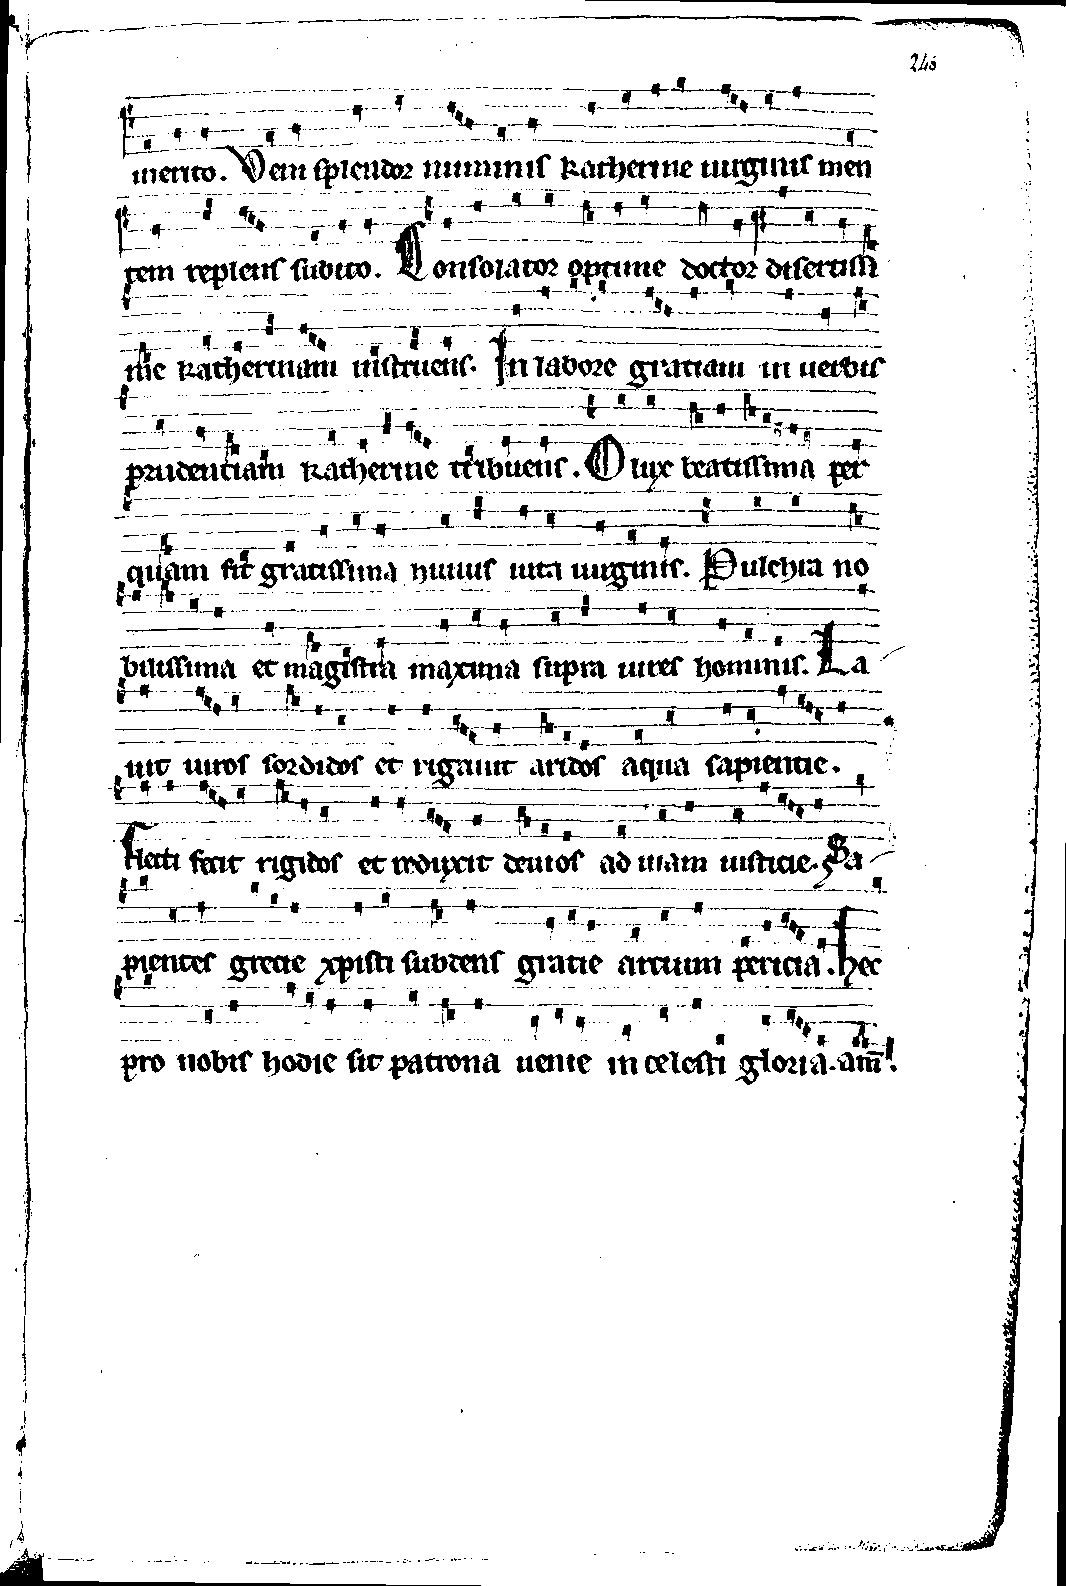 246
merito. Veni splendor numinis katherine uirginis men
tem replens subito. Consolator optime doctor disertissi
me katherinam instruens. In labore gratiam in uerbis
prudentiam katherine tribuens. O lux beatissima per
quam fit gratissima huius uita uirginis. Pulchra no
bilissima et magistra maxima supra uires hominis. La
uit uiros sordidos et rigauit aridos aqua sapientie.
Flecti fecit rigidos et reduxit deuios ad uiam iusticie. Sa
pientes grecie xpisti subdens gratie artium pericia. Hec
pro nobis hodie sit patrona uenie in celesti gloria. am̅.